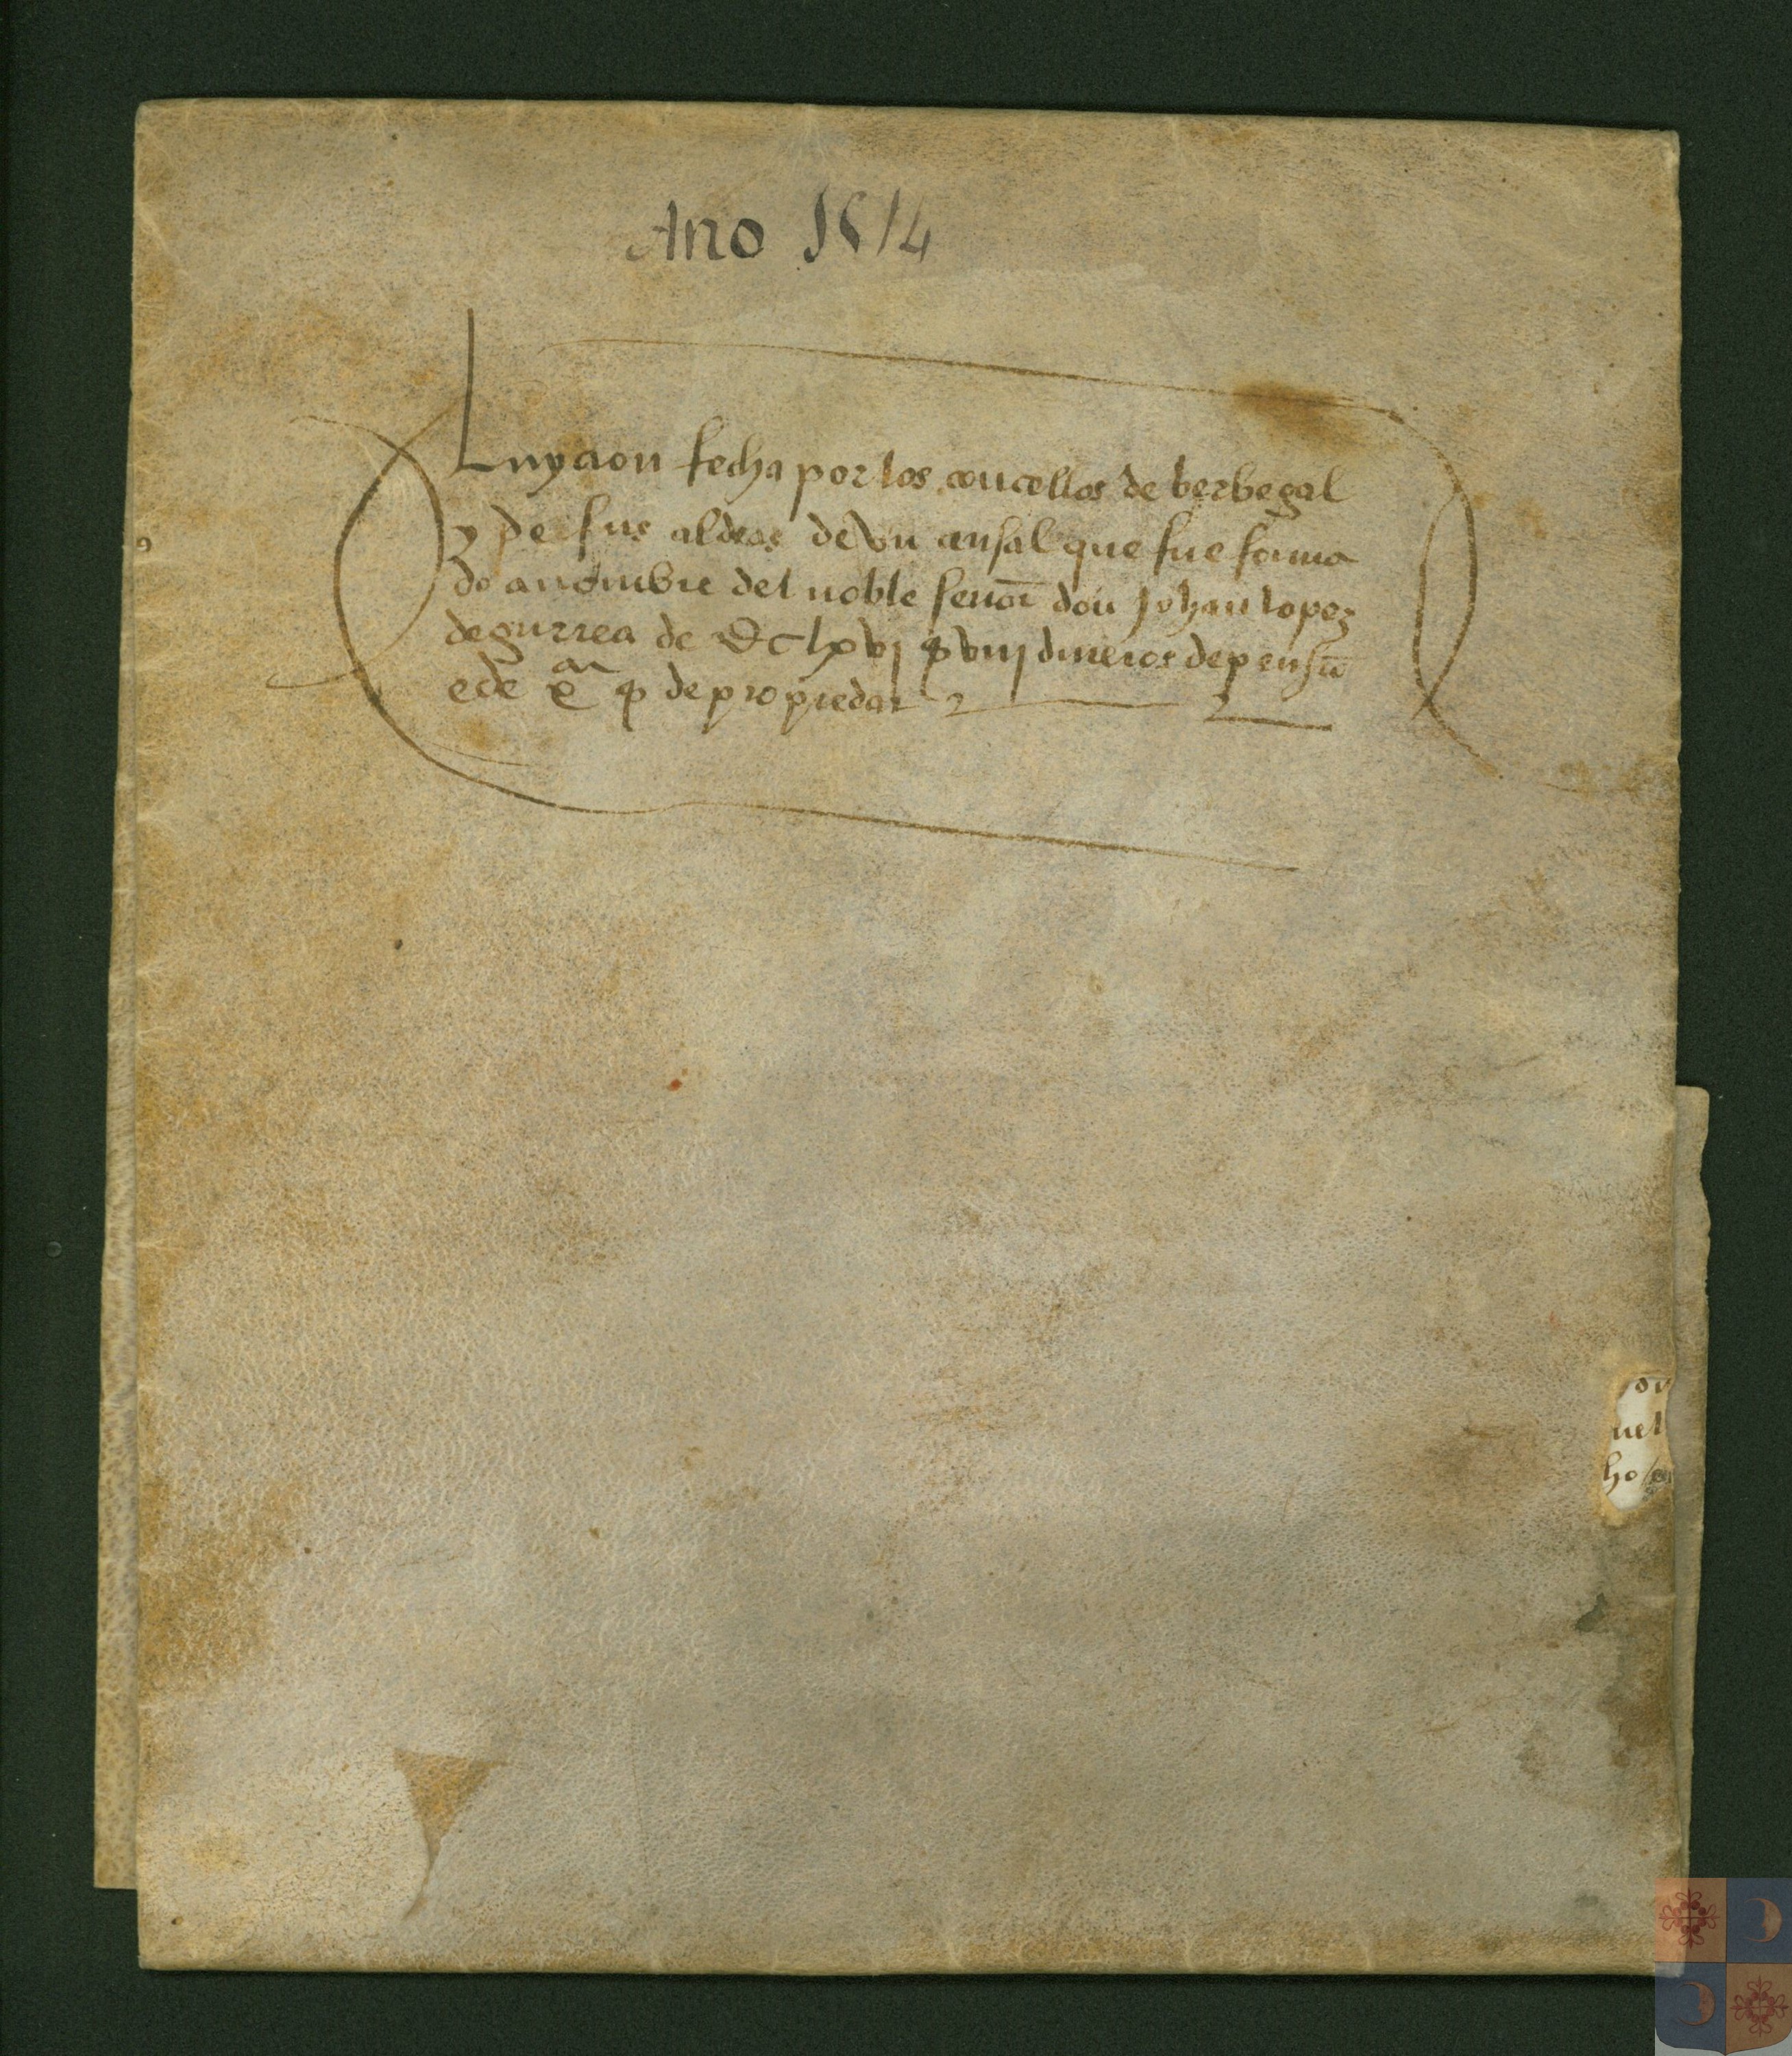 Ano 1514
Luycion fecha por los concellos de berbegal
y de sus aldeas de vn censal que fue forma
do a nombre del noble senor don Johan lopez
de gurrea de DClxvj ss viij dineros de pension
e de xm ss de propiedat
ov
uel